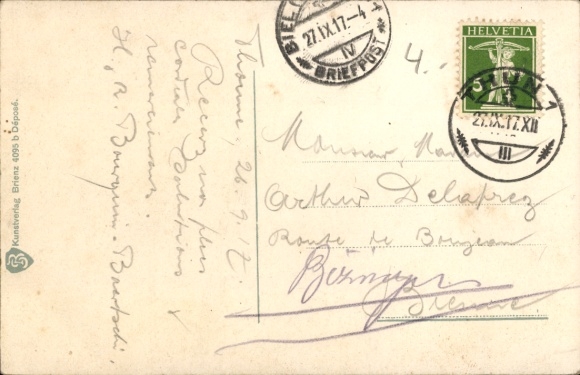 Thoune, 26.9.17.
Recevez nos plus
cordiales salutations &
remerciements.
H. R. Bourquin-Baertschi.
Kunstverlag Brienz 4095 b Déposé.
BIEL
27.IX.17.-4
IV
BRIEFPOST
4.-
HELVETIA
5
THUN 1
27.IX.17.XII
III
Monsieur
Arthur Delaprez
Route de Boujean
Bienne